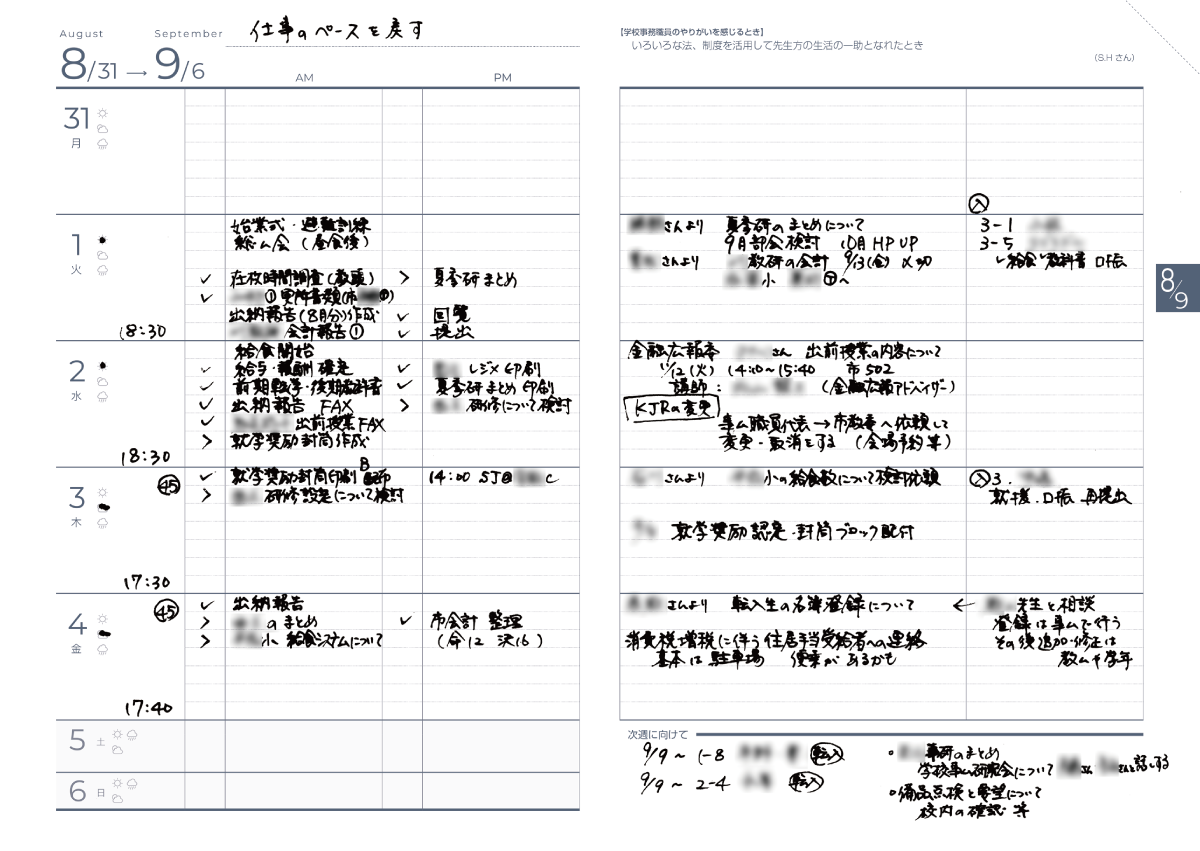 August
September
仕事のペースを戻す
8/31 → 9/6
AM
PM
【学校事務職員のやりがいを感じるとき】
いろいろな法、制度を活用して先生方の生活の一助となれたとき
(S.H さん)
31
月
1
火
18:30
始業式・避難訓練
総ム会(昼食後)
✓ 在校時間調査(教頭)
✓
出納報告(8月分)作成
会計報告①
> 夏季研まとめ
✓ 回覧
✓ 提出
さんより 夏季研のまとめについて
9月部会検討 10月HP UP
さんより 教研の会計 9/13(金) 〆切
入
3-1
3-5
✓給食 教科書 口振
2
水
18:30
給食開始
✓ 給与・報酬 確定
✓ 前期転学・後期教科書
✓ 出納報告 FAX
✓ 出前授業FAX
> 就学奨励封筒作成
✓ レジメ印刷
✓ 夏季研まとめ 印刷
> 研修について検討
金融広報
さん 出前授業の内容について
11/12(火) 14:10~15:40 市502
講師: (金融広報アドバイザー)
KJRの変更
事ム職員代表→市教委へ依頼して
変更・取消をする (会場予約等)
3
木
17:30
45
✓ 就学奨励封筒印刷 配布
> 研修設定について検討
14:00
さんより 小の給食数について検討依頼
就学奨励認定・封筒ブロック配付
入 3.
就援.口振 再提出
4
金
17:40
45
✓ 出納報告
> のまとめ
> 小 給食システムについて
✓ 市会計 整理
さんより 転入生の名簿登録について
← 先生と相談
登録は事ムで行う
その後追加・修正は
教ムや学年
消費税増税に伴う住居手当受給者への連絡
基本は駐車場 便乗があるかも
5
土
6
日
次週に向けて
9/9 ~ 1-8 転入
9/9 ~ 2-4 転入
・ 事研のまとめ
学校事ム研究会について さん さんと話しする
・備品点検と要望について
校内の確認 等
8/9